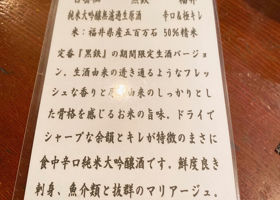 黒鉄　福井
純米大吟醸無濾過生原酒　辛口＆極キレ
米：福井県産五百万石　50％精米
定番『黒鉄』の期間限定生酒バージョ
ン。生酒由来の透き通るようなフレッ
シュな香りと　由来のしっかりとし
た骨格を感じるお米の旨味、ドライで
シャープな余韻とキレが特徴のまさに
食中辛口純米大吟醸酒です。鮮度良き
刺身、魚介類と抜群のマリアージュ。